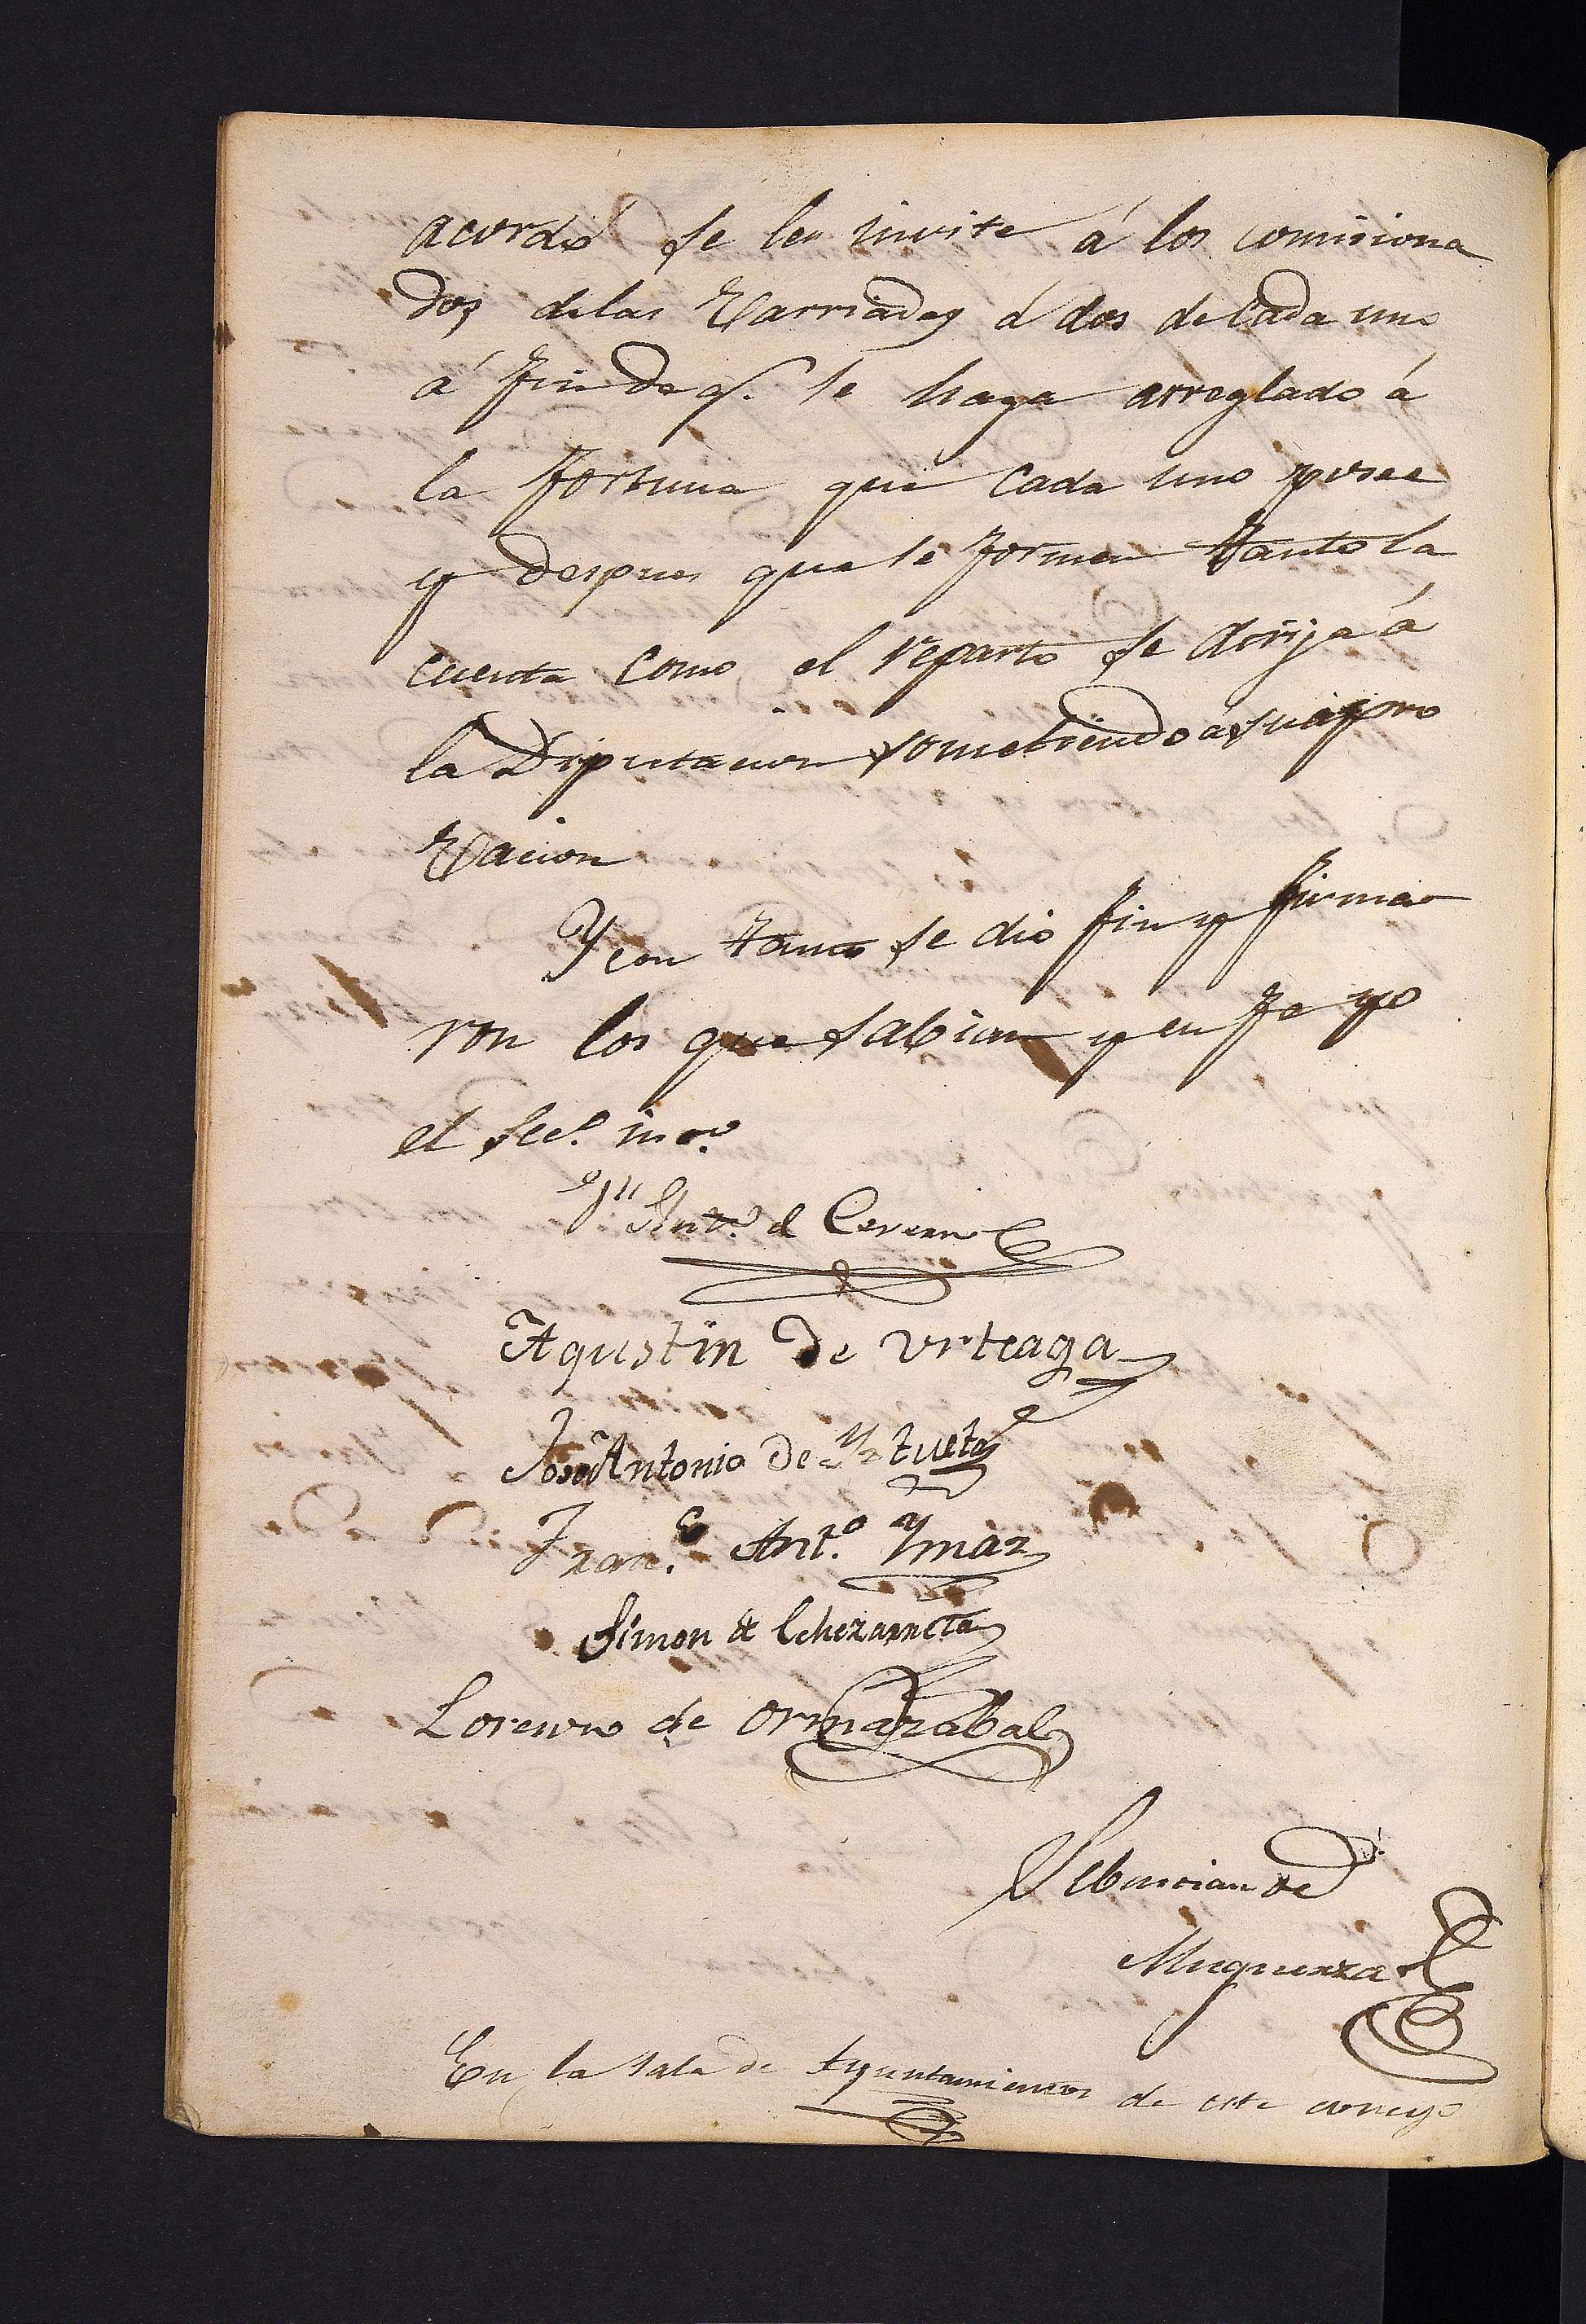 acordó se les invite á los comisiona
dos delas Varriadas á dos de cada uno
á fin de q.e se haga arreglado á
la fortuna que cada uno posee
y despues que se formen tanto la
cuenta como el reparto se dirija á
la Diputacion sometiendo a su apro
vacion
Y con tanto se dió fin y firma
ron los que sabian y en fe yo
el Sec.o
Ant.o de
Agustin de Urteaga
José Antonio de Yztueta
Fran.co Ant.o Ymaz
Simon de Echezarreta
Lorenzo de Ormazabal
Sebastian de
Muguerza
En la Sala de Ayuntamientos de este concejo